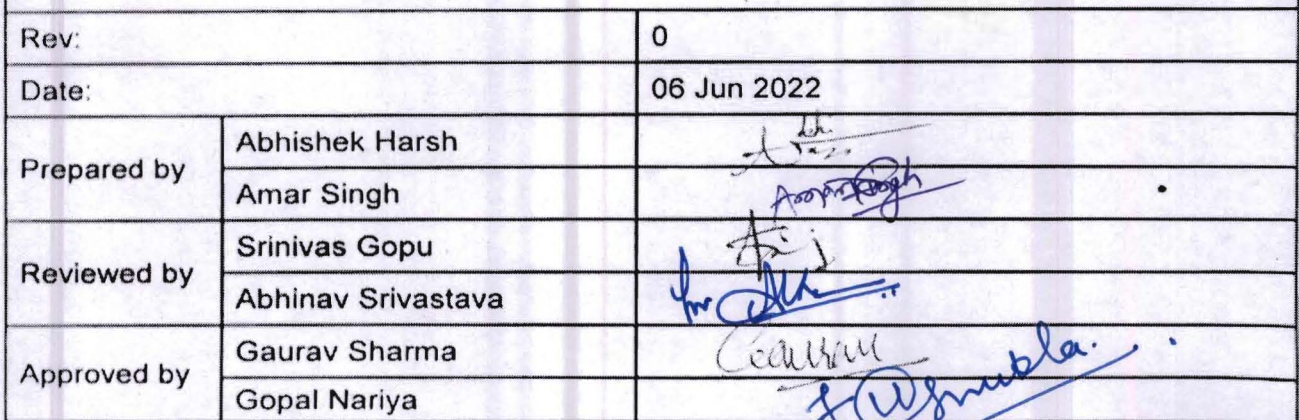 Rev: 0
Date: 06 Jun 2022
Prepared by
Abhishek Harsh
Amar Singh Amar Singh
Reviewed by
Srinivas Gopu
Abhinav Srivastava for
Approved by
Gaurav Sharma Gaurav
Gopal Nariya